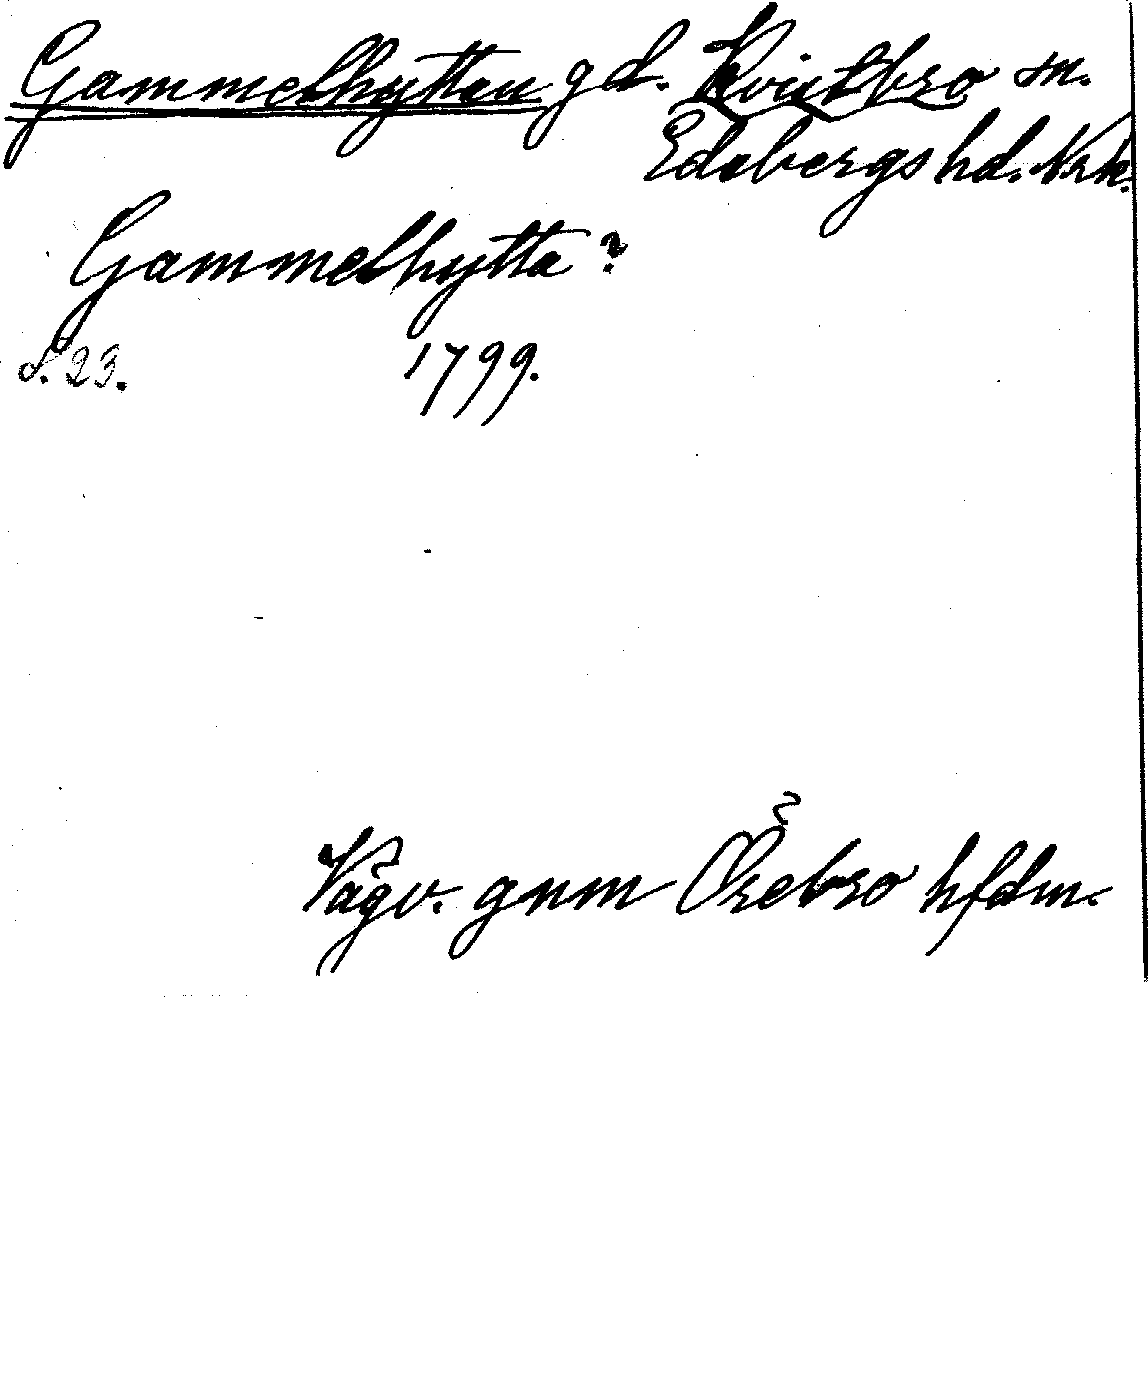 Gammelhyttan gd. Kvistbro sn.
Edsbergs hd. Nrk.
Gammelhytta?
s. 23. 1799.
Vägv. gnm Örebro hfdm.